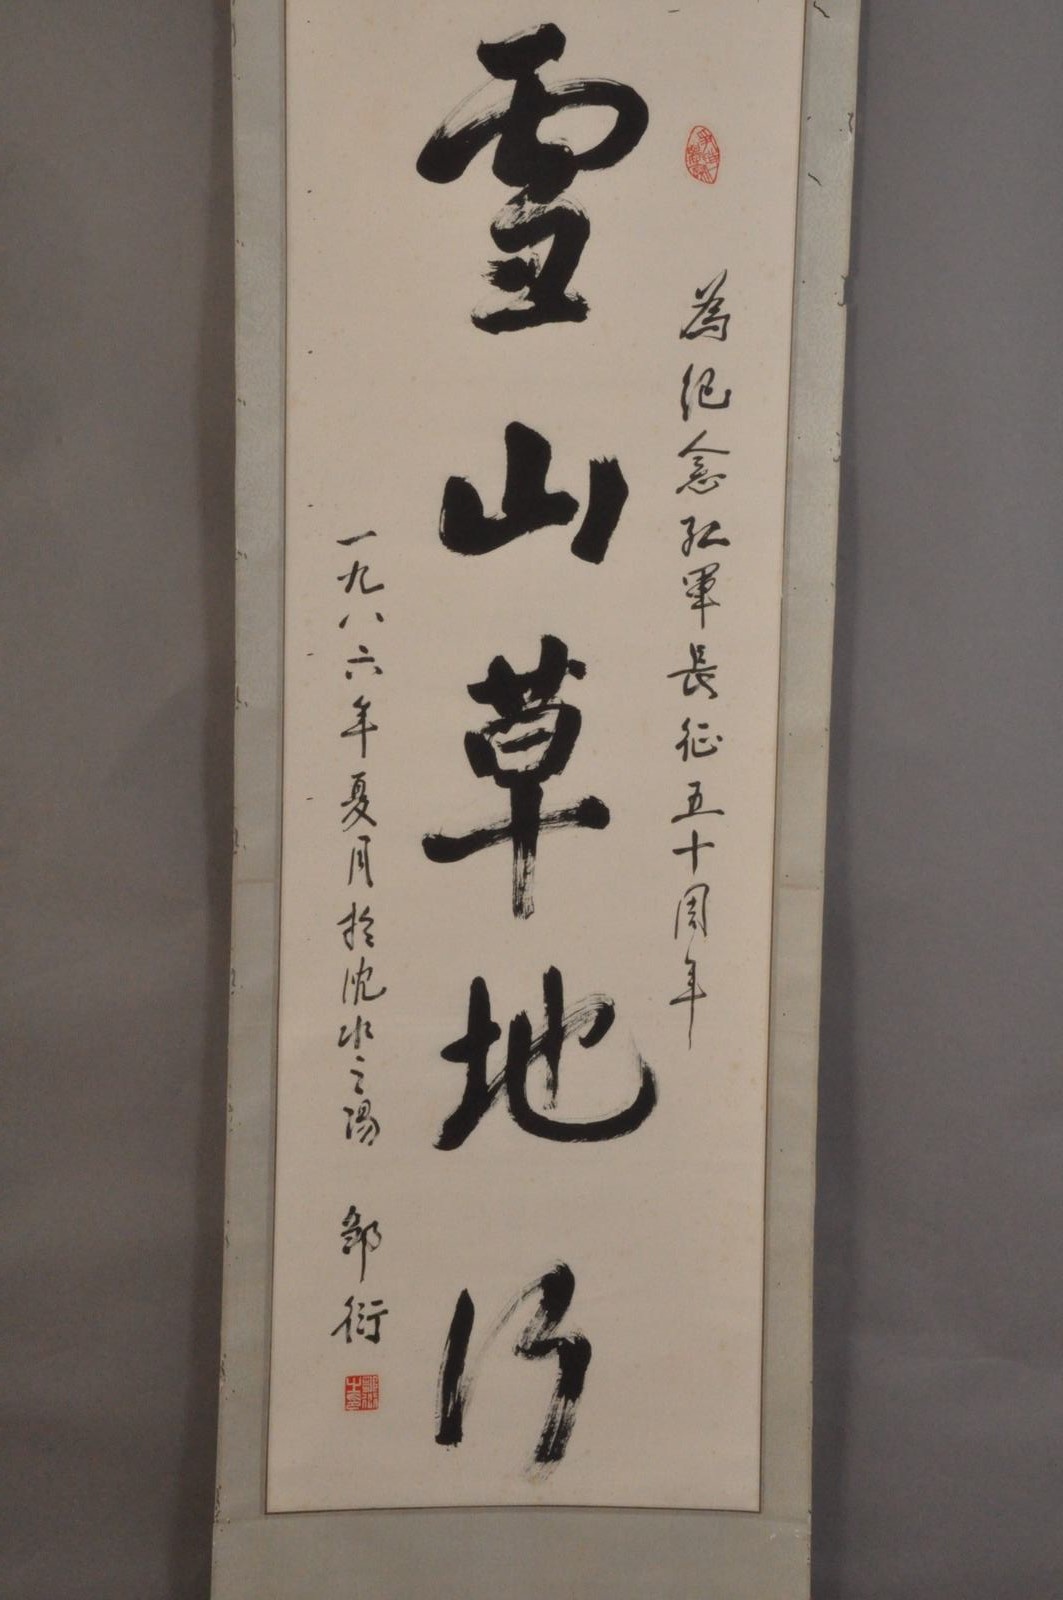 為紀念紅軍長征五十周年
雪山草地行
一九八六年夏月於沈水之陽
鄒衍